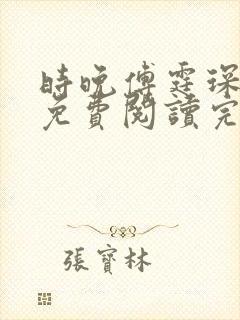 時晚傅霆琛
免費閱讀完
張寶林